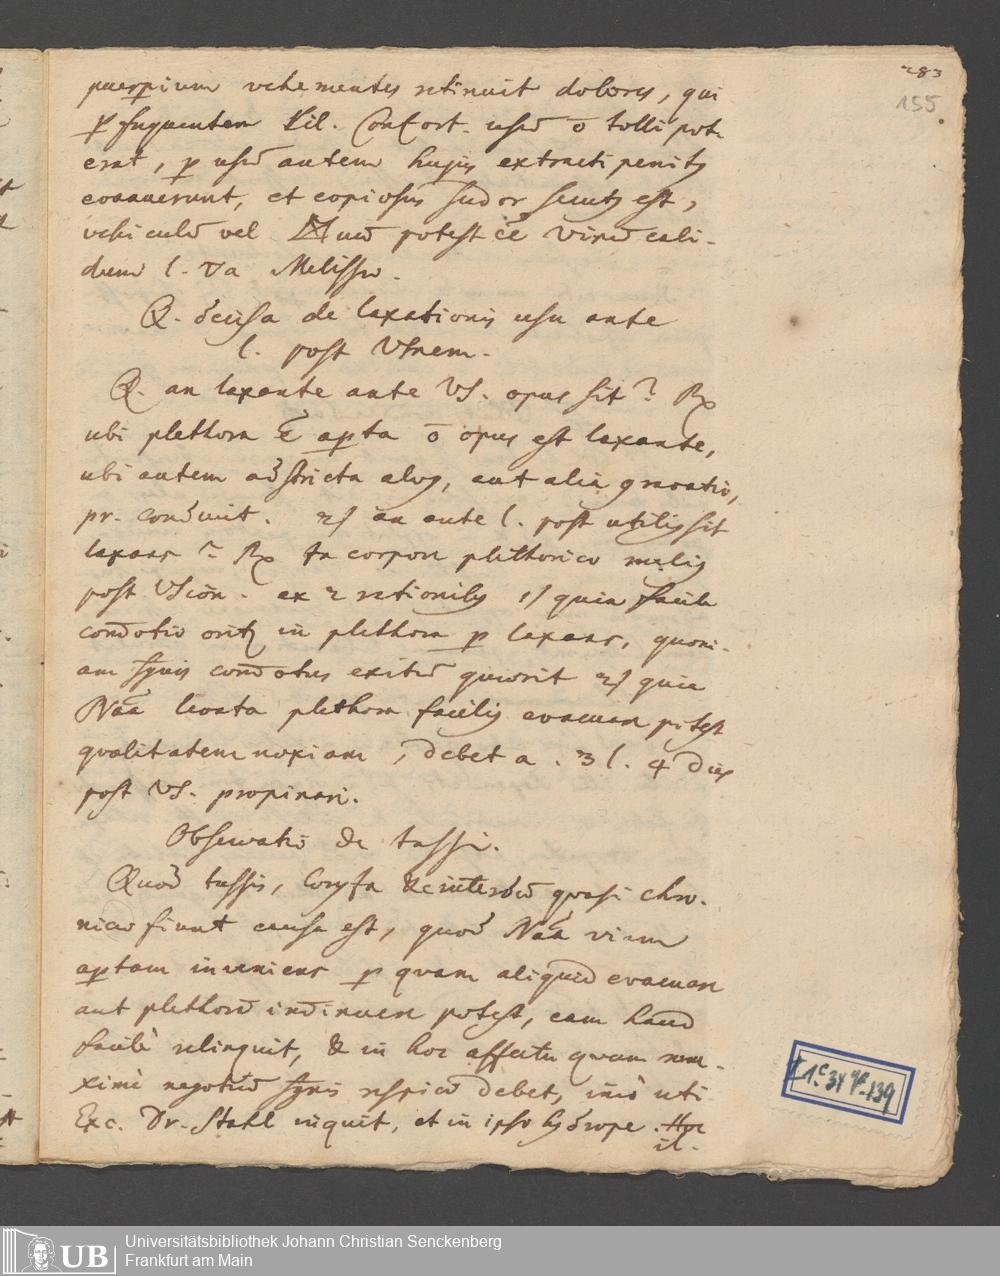 283
155.
puerpium vehementes retinuit dolores, qui
p frequentem Pil. Confort. usū ō tolli pot-
erat, p usū autem hujus extracti penitus
evanuerunt, et copiosus sudor secutus est,
vehiculū vel potest ēē vinū cali-
dum l. ▽a Melissæ.
Q. de laxationis usu ante
l. post VSnem.
Q. an laxante ante VS. opus sit? Rx
ubi plethora ē apta ō opus est laxante,
ubi autem adstricta alvg, aut alia gravatio,
pr. conducit. 2) an ante l. post utilig sit
laxans? Rx In corpore plethorico melig
post VSion. ex 2 rationibg 1) quia facile
com̄otio oritz in plethora p laxans, quoni-
am sgnis com̄otus exitū quærit 2) quia
Naa levata plethora facilig evacuare potest
qualitatem noxiam, debet a. 3 l. 4 dies
post VS. propinari.
Observatio de tussi.
Quod tussis, Coryza &c interdū quasi chro-
nicæ fiunt causa est, quod Naa viam
aptam inveniens p quam aliquid evacuare
aut plethorā imminuere potest, eam haud
facilè relinquit, & in hoc affectu quam ma-
ximè negotiū sgnis respici debet, imò uti
Exc. Dr. Stahl inquit, et in ipso hydrope. Hoc
it-
I 1c 34 No 139
UB Universitätsbibliothek Johann Christian Senckenberg
Frankfurt am Main